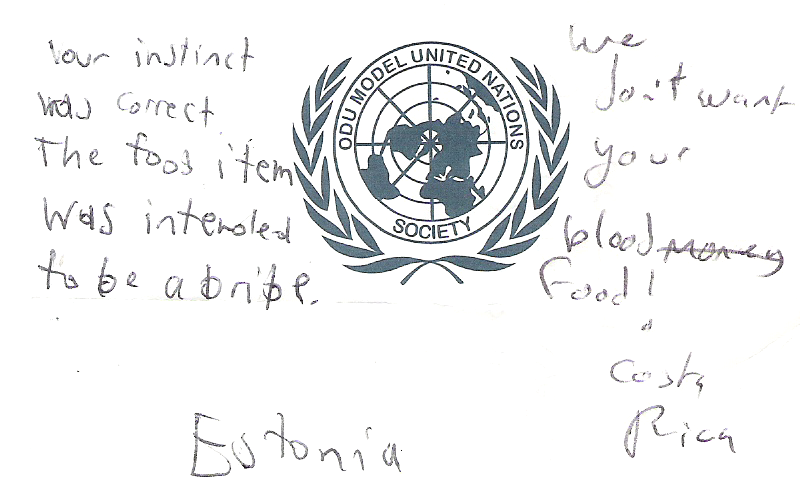 Your instinct
was correct
The food item
was intended
to be a bribe.
Estonia
ODU MODEL UNITED NATIONS
SOCIETY
We
Don't want
your
blood money
Food!
Costa
Rica